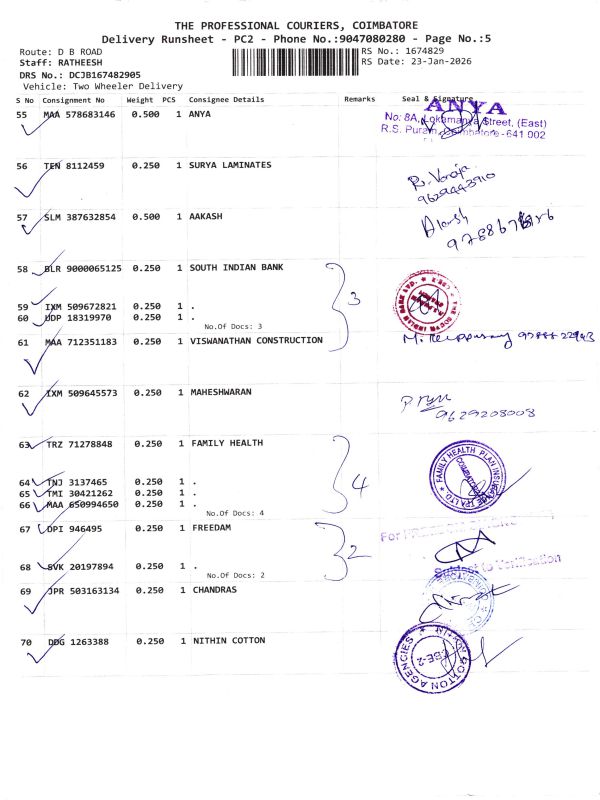 THE PROFESSIONAL COURIERS, COIMBATORE
Delivery Runsheet - PC2 - Phone No.:9047080280 - Page No.:5
Route: D B ROAD
RS No.: 1674829
Staff: RATHEESH
RS Date: 23-Jan-2026
DRS No.: DCJB167482905
Vehicle: Two Wheeler Delivery
S No Consignment No Weight PCS Consignee Details Remarks Seal & Signature
55 MAA 578683146 0.500 1 ANYA
ANYA
No: 8A, Lokamanya Street, (East)
R.S. Puram, Coimbatore - 641 002
56 TEN 8112459 0.250 1 SURYA LAMINATES
9629443910
57 SLM 387632854 0.500 1 AAKASH
58 BLR 9000065125 0.250 1 SOUTH INDIAN BANK
3
59 IXM 509672821 0.250 1 .
60 UDP 18319970 0.250 1 .
No.Of Docs: 3
61 MAA 712351183 0.250 1 VISWANATHAN CONSTRUCTION
62 IXM 509645573 0.250 1 MAHESHWARAN
9629208008
63 TRZ 71278848 0.250 1 FAMILY HEALTH
FAMILY HEALTH PLAN INSURANCE
4
64 TNJ 3137465 0.250 1 .
65 TMI 30421262 0.250 1 .
66 MAA 650994650 0.250 1 .
No.Of Docs: 4
67 OPI 946495 0.250 1 FREEDAM
For
2
68 SVK 20197894 0.250 1 .
Subject to Verification
No.Of Docs: 2
69 JPR 503163134 0.250 1 CHANDRAS
70 DDG 1263388 0.250 1 NITHIN COTTON
NITHIN COTTON AGENCIES
CBE-2